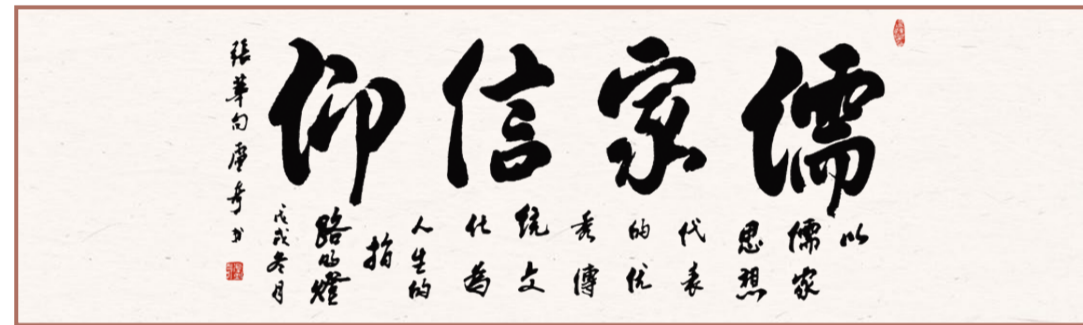 儒家信仰
以
儒家
思想
代表
的优
秀傳
统文
化为
人生的
指
路明燈
戊戌冬月
張華向书